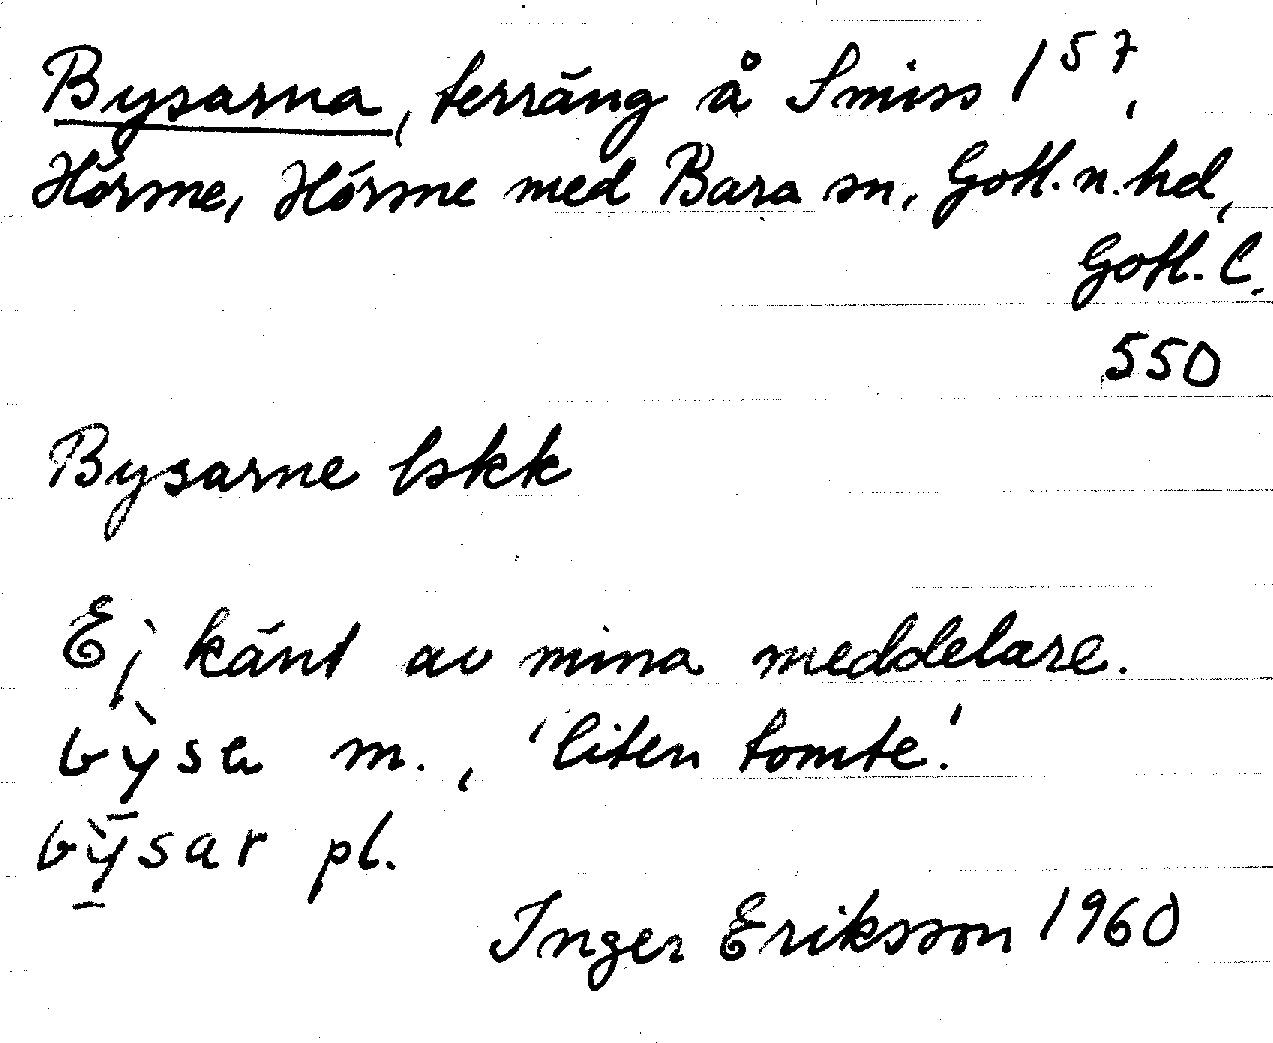 Bysarna, terräng å Smiss 1⁵⁷,
Hörsne, Hörsne med Bara sn, Gotl. n. hd,
Gotl. l.
550
Bysarne Iskk
Ej känt av mina meddelare.
bỳsa m., 'liten tomte'.
bỳsar pl.
Inger Eriksson 1960